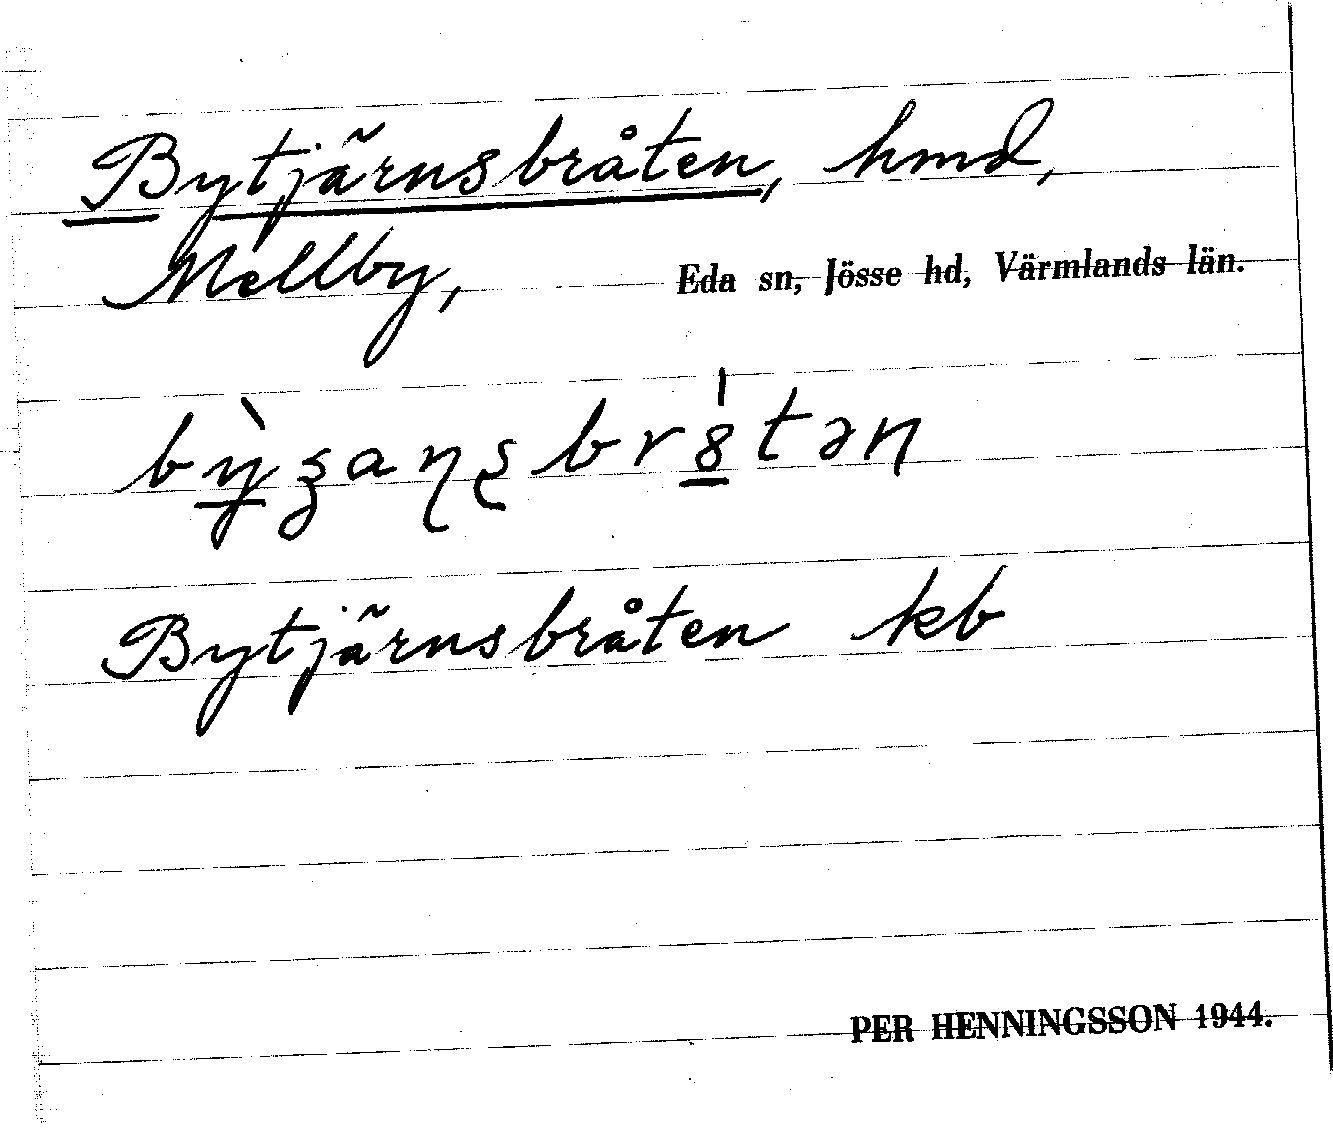 Bytjärnsbråten, hmd,
Mellby, Eda sn, Jösse hd, Värmlands län.
Bytjärnsbråten kb
PER HENNINGSSON 1944.